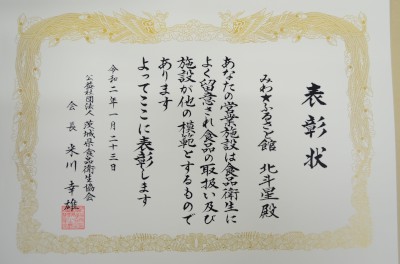 表彰状
みわ★ふるさと館 北斗星殿
あなたの営業施設は食品衛生に
よく留意され食品の取扱い及び
施設が他の模範とするもので
あります
よってここに表彰します
令和二年一月二十三日
公益社団法人 茨城県食品衛生協会
会長 米川幸雄